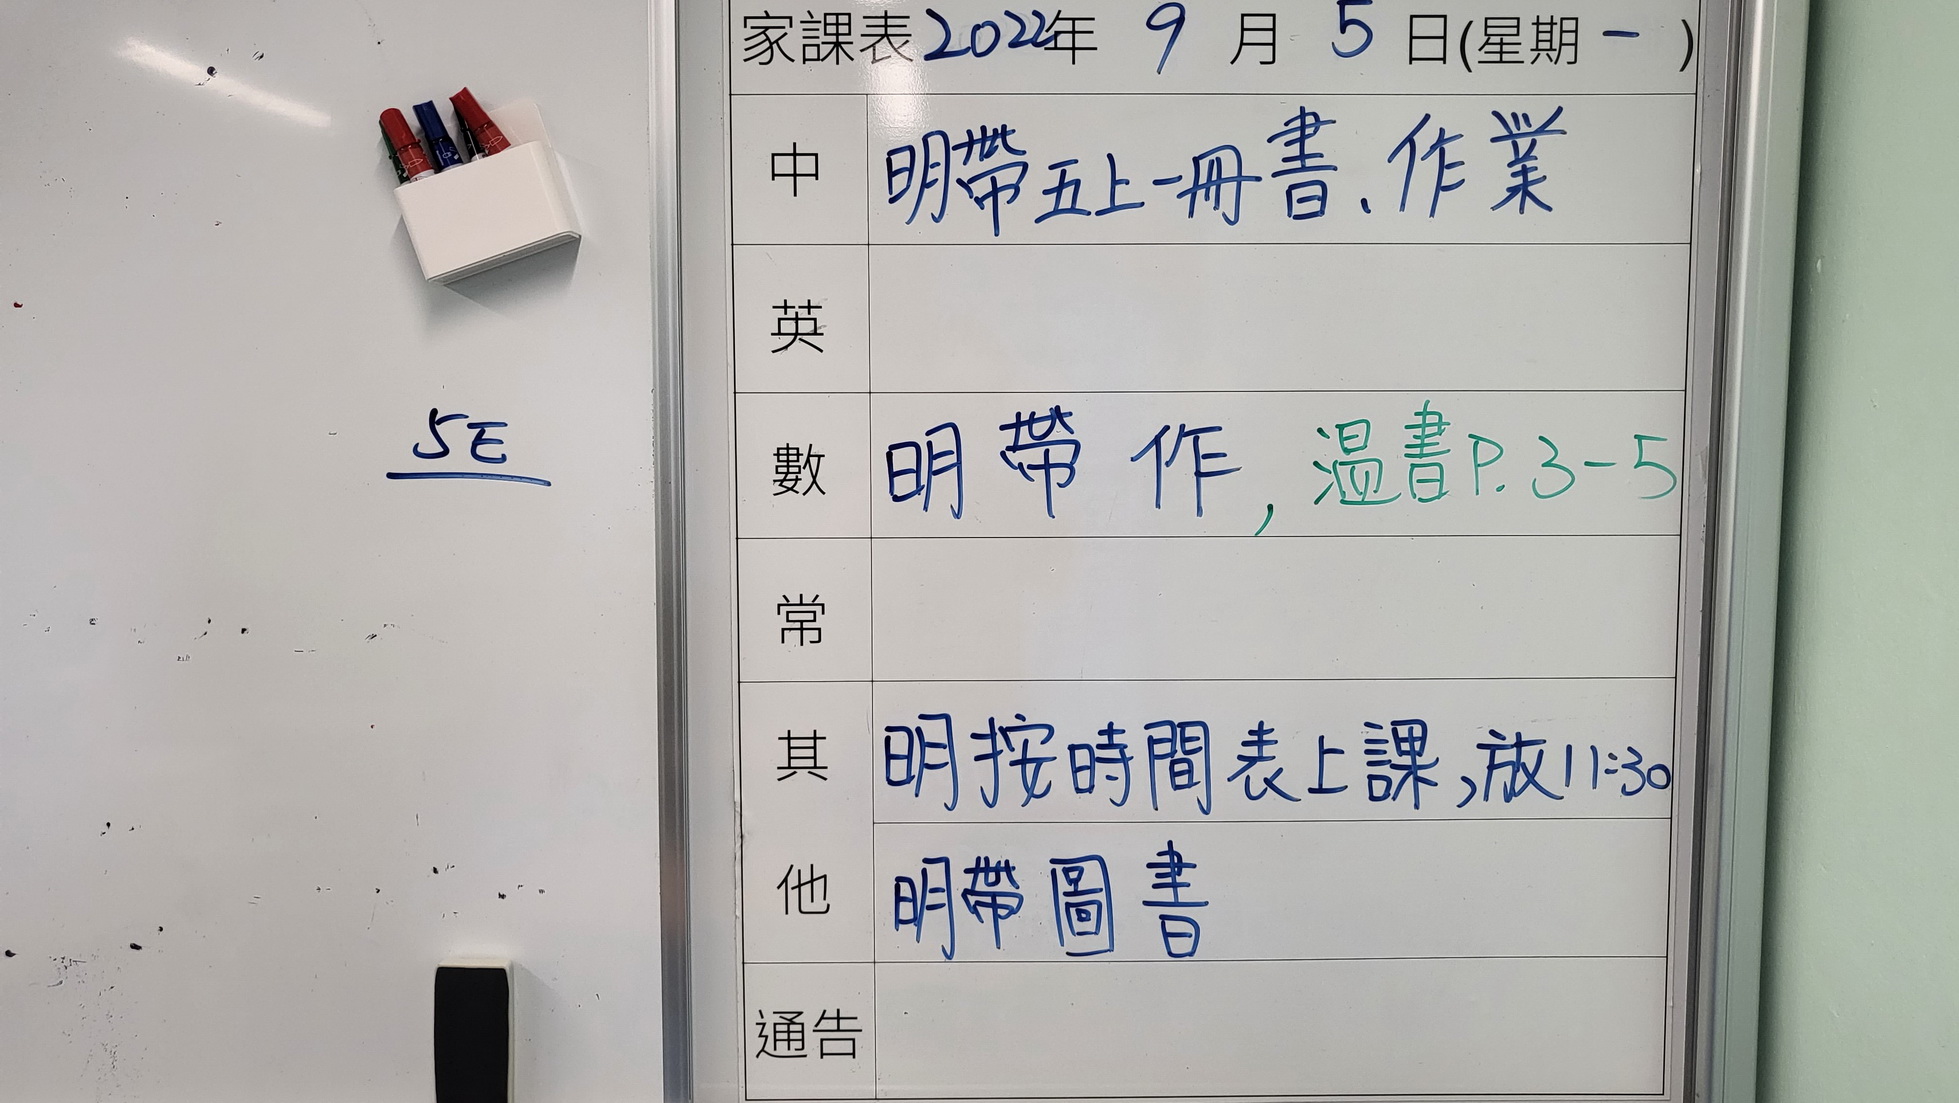 家課表2022年 9 月 5 日(星期一)
中 明帶五上一冊書、作業
英
5E
數 明帶作,溫書P.3-5
常
其他 明按時間表上課,放11:30
明帶圖書
通告